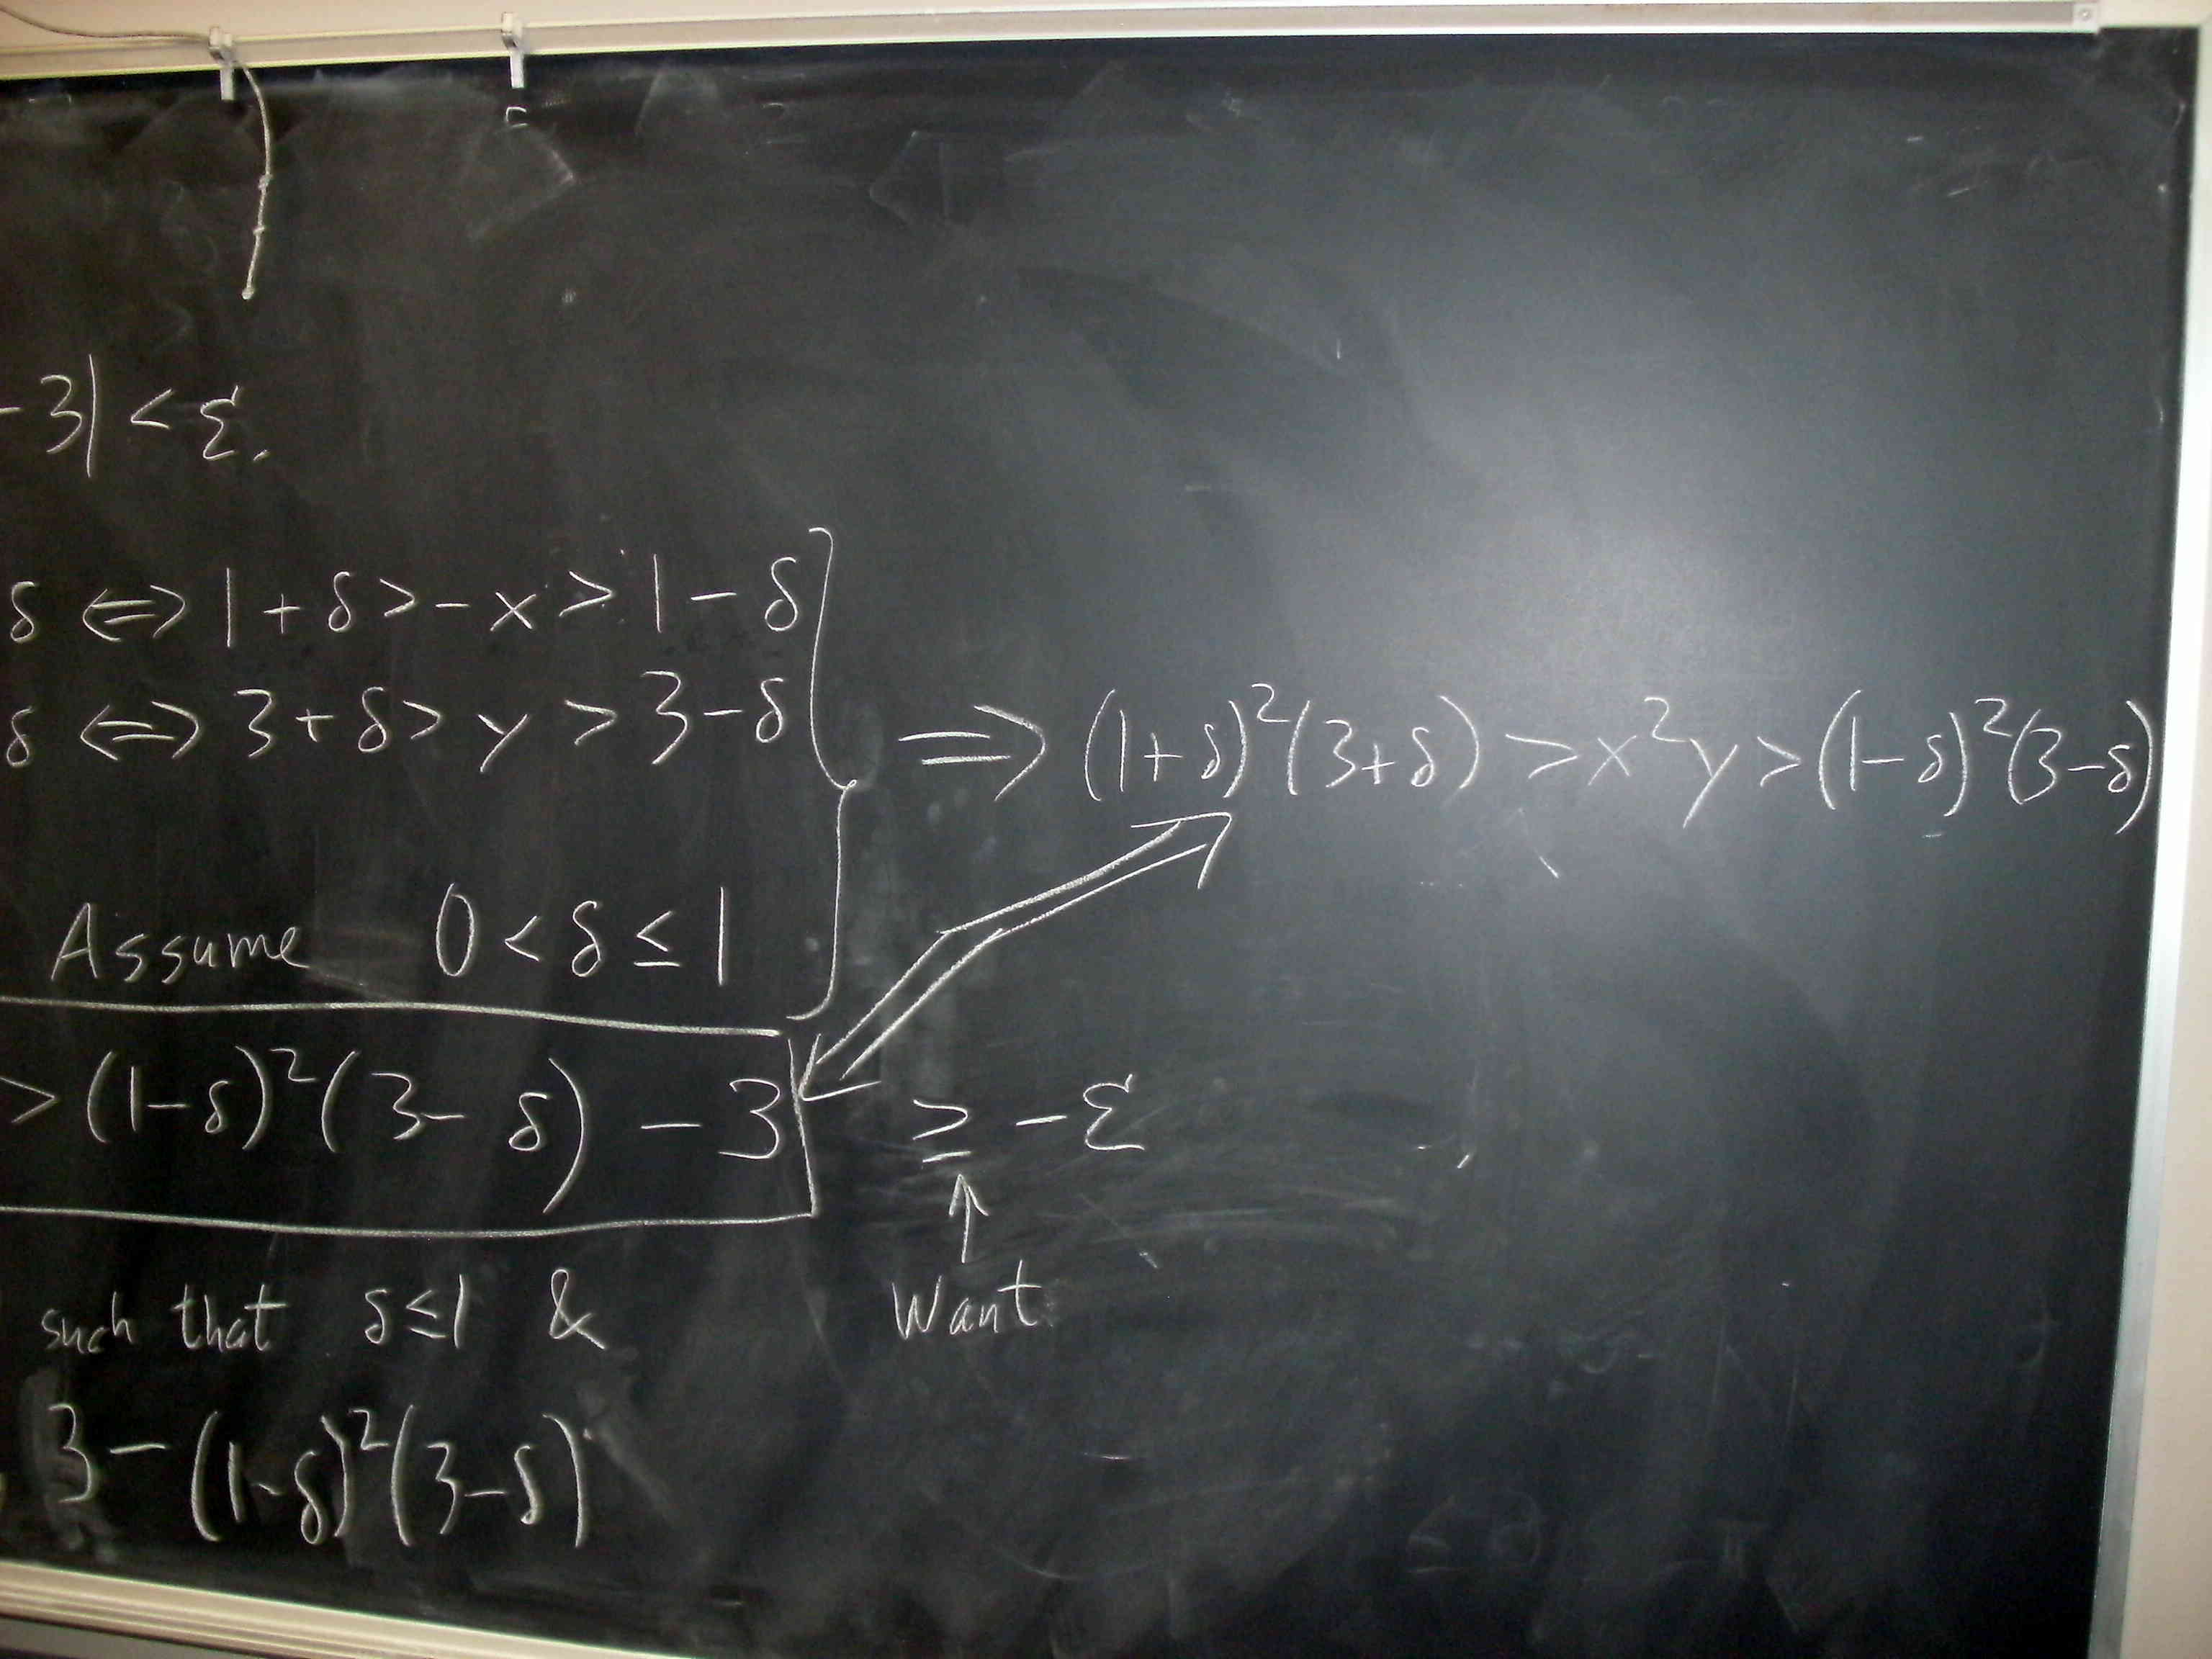 -3| < ε.
δ ⇔ 1 + δ > -x > 1 - δ
δ ⇔ 3 + δ > y > 3 - δ
⇒ (1+δ)²(3+δ) > x²y > (1-δ)²(3-δ)
Assume 0 < δ ≤ 1
> (1-δ)²(3-δ) - 3 ≥ -ε
↑
Want
such that δ ≤ 1 &
3 - (1-δ)²(3-δ)